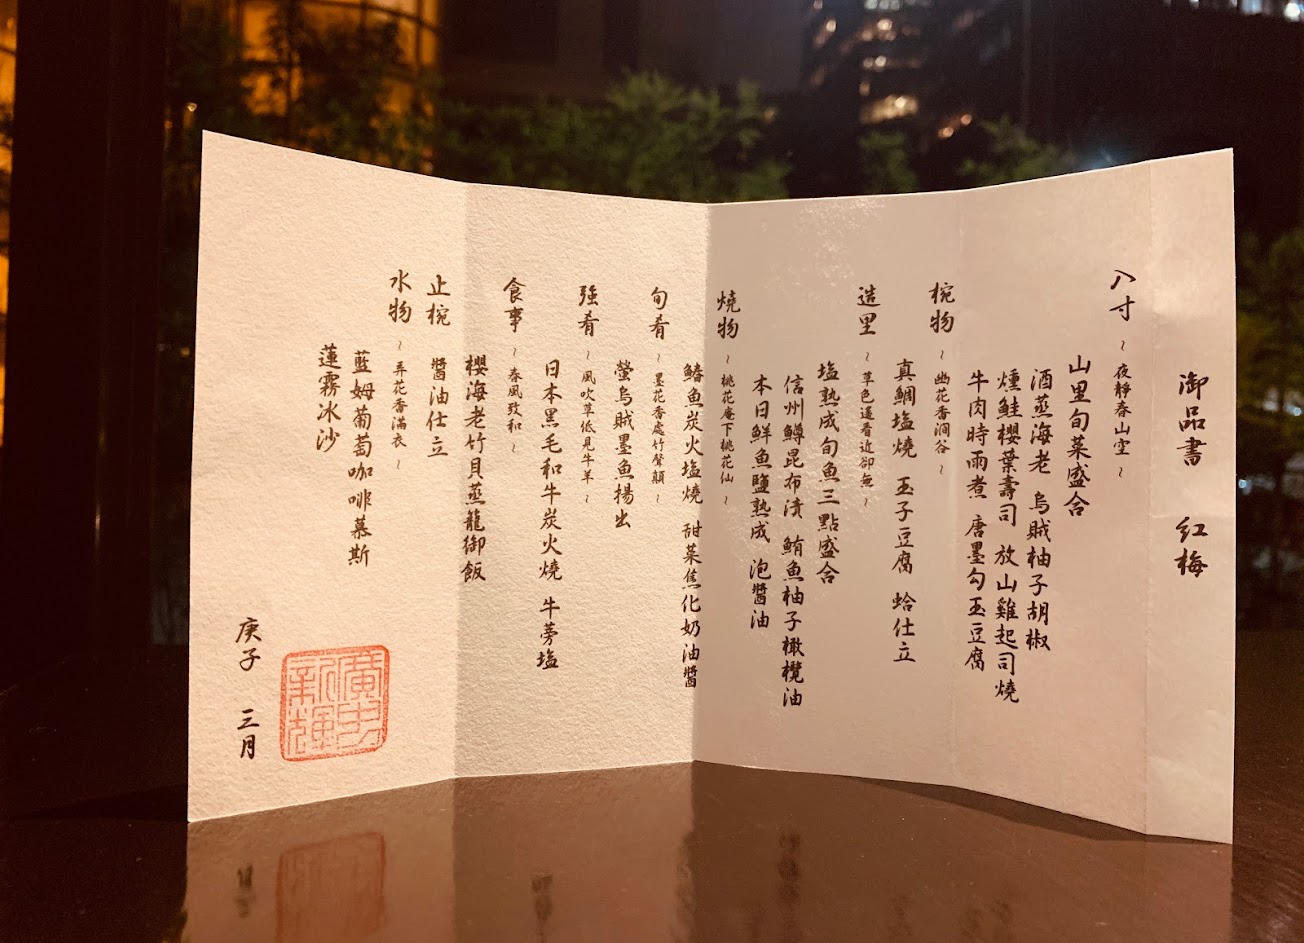 御品書 紅梅
八寸 ~ 夜靜春山空 ~
山里旬菜盛合
酒蒸海老 烏賊柚子胡椒
燻鮭櫻葉壽司 放山雞起司燒
牛肉時雨煮 唐墨勾玉豆腐
椀物 ~ 幽花香澗谷 ~
真鯛塩燒 玉子豆腐 蛤仕立
造里 ~ 草色遙看近卻無 ~
塩熟成旬魚三點盛合
信州鱒昆布漬 鮪魚柚子橄欖油
本日鮮魚鹽熟成 泡醬油
燒物 ~ 桃花庵下桃花仙 ~
鰆魚炭火塩燒 甜菜焦化奶油醬
旬肴 ~ 墨花香處竹聲顛 ~
螢烏賊墨魚揚出
強肴 ~ 風吹草低見牛羊 ~
日本黑毛和牛炭火燒 牛蒡塩
食事 ~ 春風致和 ~
櫻海老竹貝蒸籠御飯
止椀 醬油仕立
水物 ~ 弄花香滿衣 ~
藍姆葡萄咖啡慕斯
蓮霧冰沙
庚子 三月